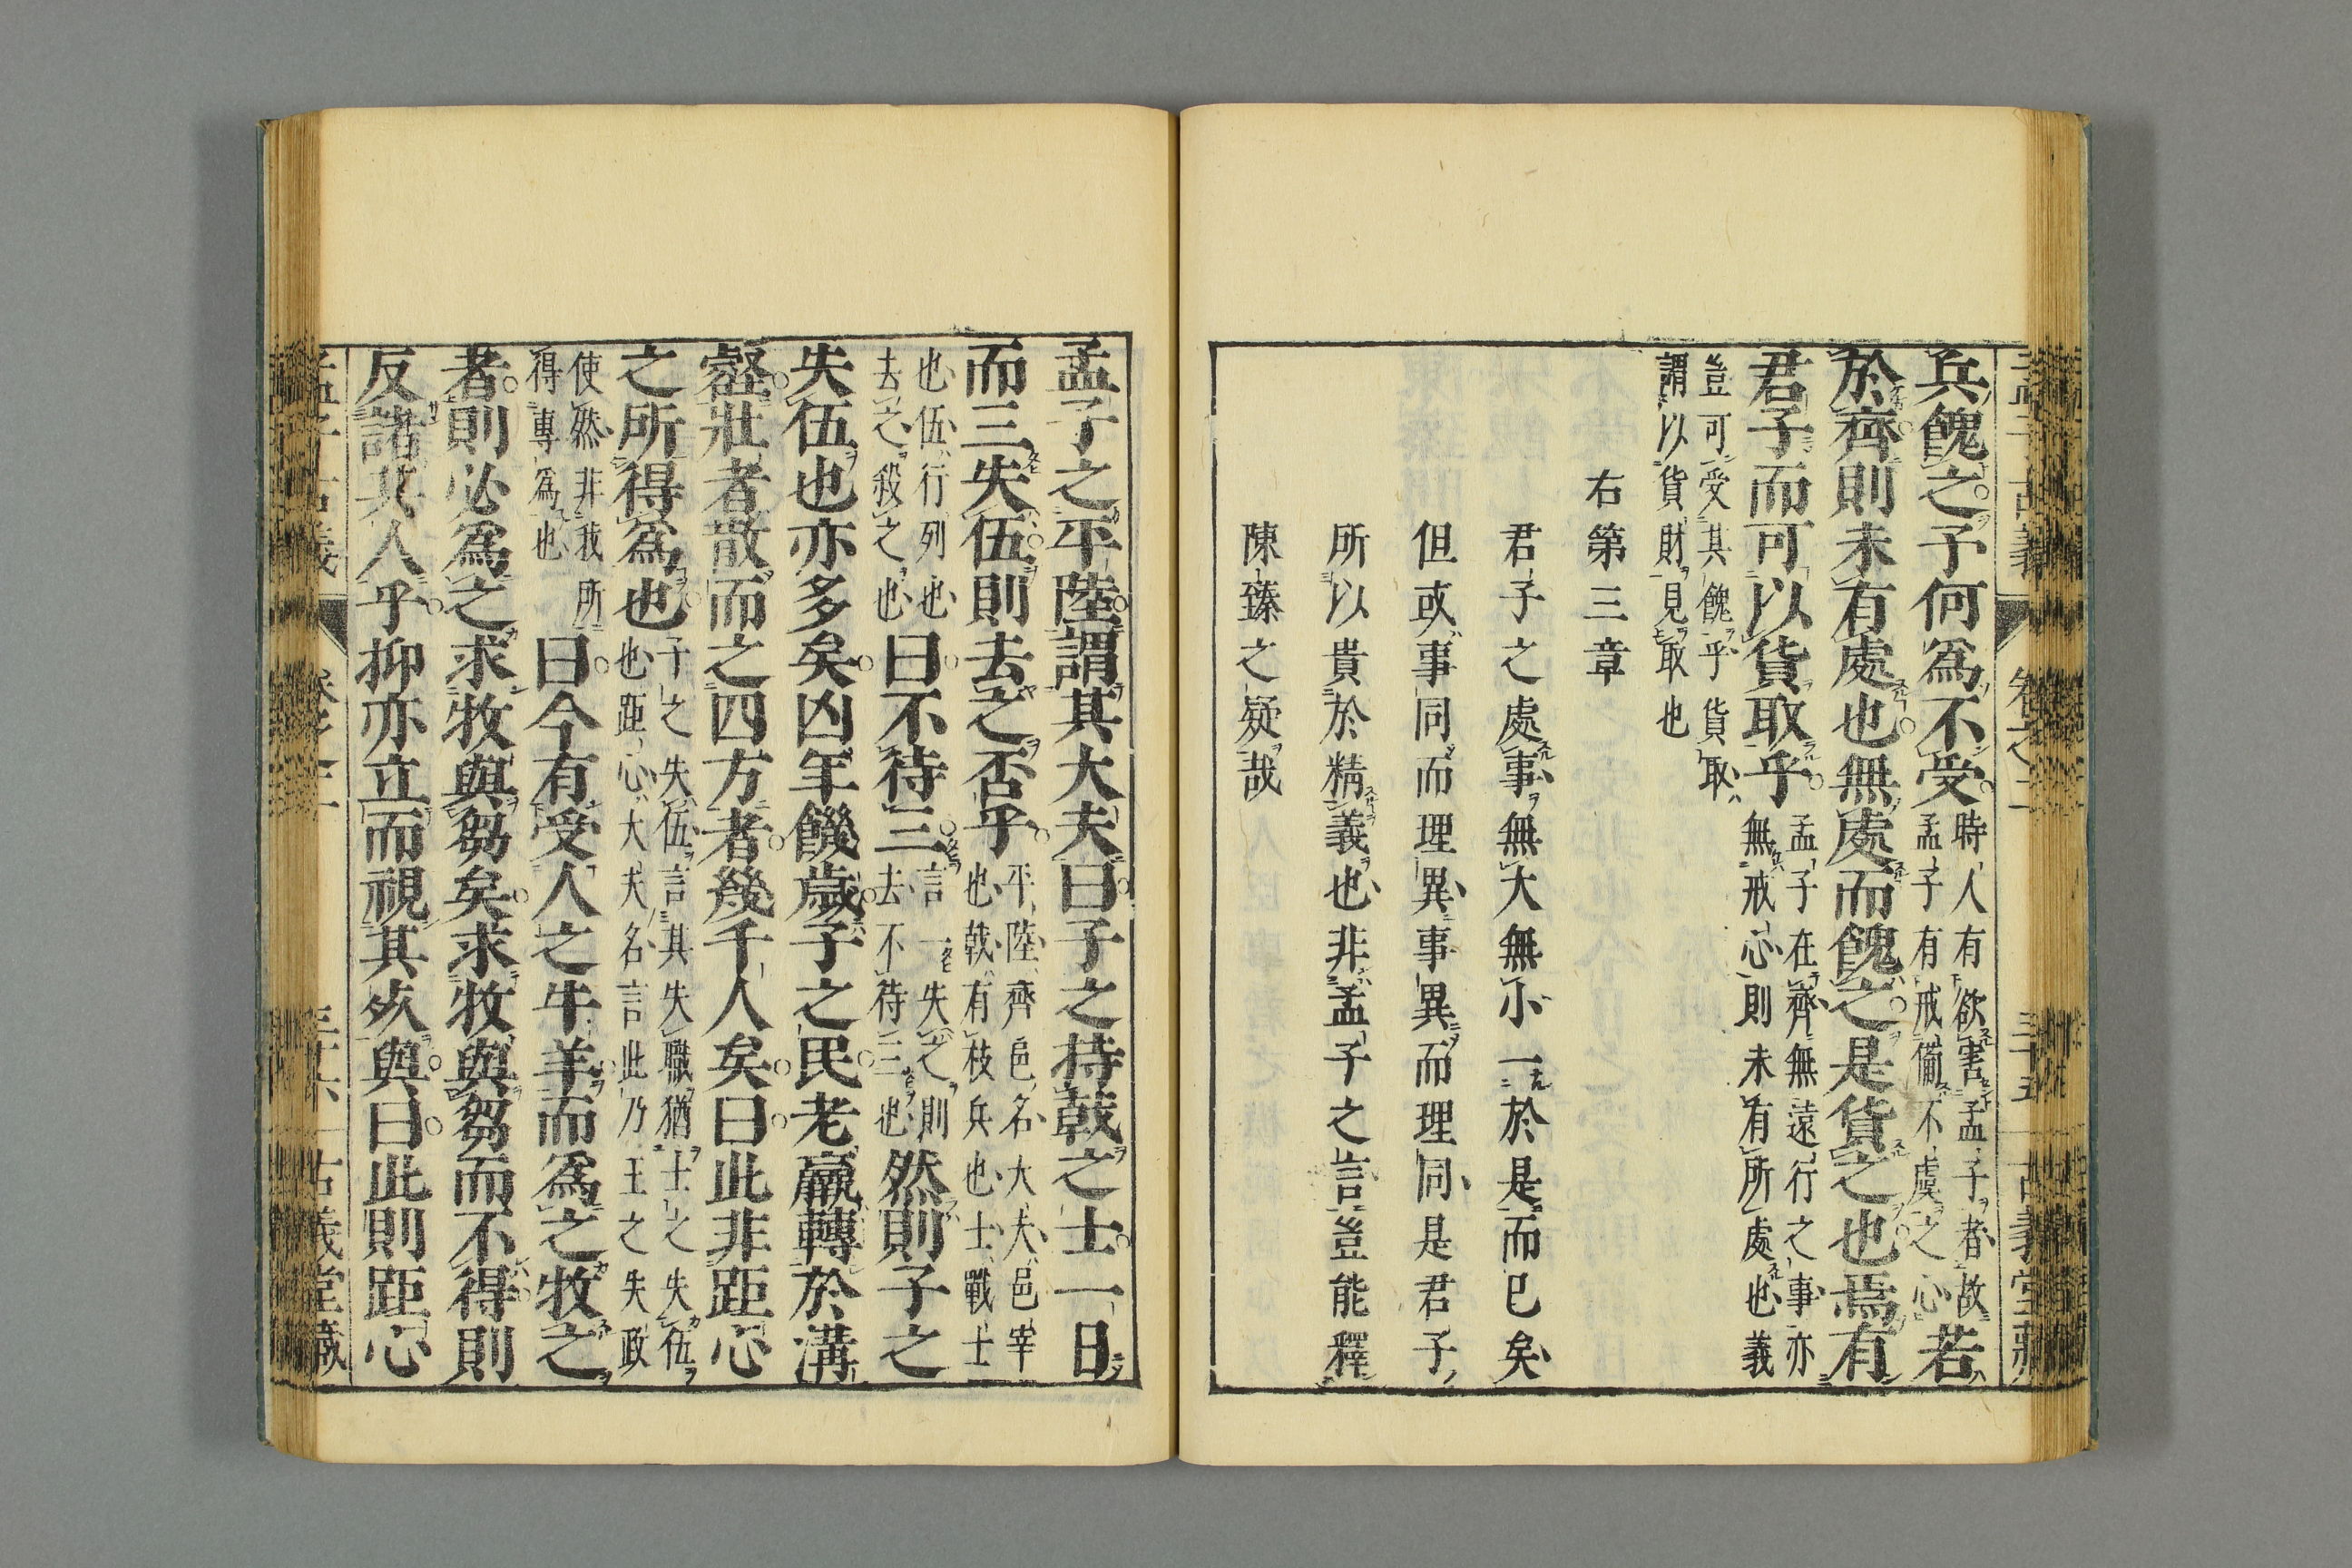 兵餽之予何爲不受時人有欲害孟子者故孟子有戒備不虞之心若
於齊則未有處也無處而餽之是貨之也焉有
君子而可以貨取乎孟子在齊無遠行之事亦無戒心則未有所處也義
豈可受其餽乎貨取謂以貨財見取也
右第三章
君子之處事無大無小一於是而已矣
但或事同而理異事異而理同是君子
所以貴於精義也非孟子之言豈能釋
陳臻之疑哉
孟子之平陸謂其大夫曰子之持戟之士一日
而三失伍則去之否乎平陸齊邑名大夫邑宰也戟有枝兵也士戰士
也伍行列也去之殺之也曰不待三言一失之則去不待三也然則子之
失伍也亦多矣凶年饑歲子之民老羸轉於溝
壑壯者散而之四方者幾千人矣曰此非距心
之所得爲也子之失伍言其失職猶士之失伍也距心大夫名言此乃王之失政
使然非我所得專爲也曰今有受人之牛羊而爲之牧之
者則必爲之求牧與芻矣求牧與芻而不得則
反諸其人乎抑亦立而視其死與曰此則距心